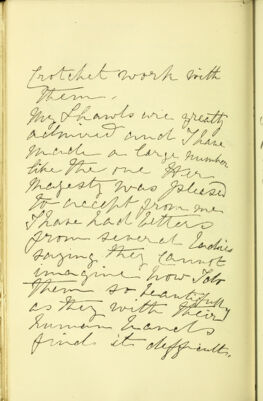 Crotchet work with
them.
My Shawls are greatly
admired and I have
made a large number
like the one Her
Majesty was pleased
to accept from me
I have had letters
from several Ladies
saying they cannot
imagine how I do
them so beautifully
as they with their
human hands
find it difficult.